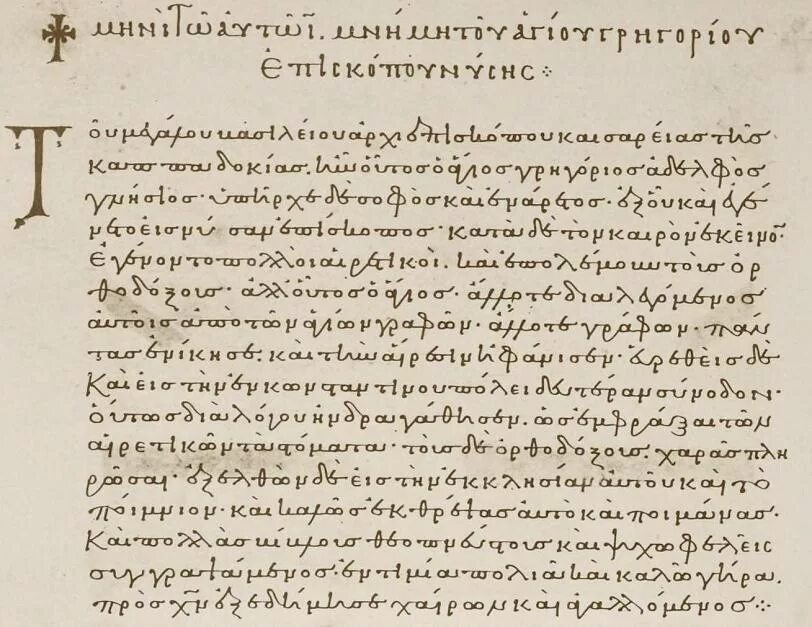 μηνὶ τῶ αὐτῶ ῑ. μνήμη τοῦ ἁγίου γρηγορίου
ἐπισκόπου νύσης ⁘
Τοῦ μεγάλου βασιλείου ἀρχιεπισκόπου καισαρείας τῆς
καππαδοκίας. ἦν οὗτος ὁ ἅγιος γρηγόριος ἀδελφὸς
γνήσιος· ὑπῆρχε δὲ σοφὸς καὶ ἐνάρετος· ἐξ οὗ καὶ ἐγέ
νετο εἰς νύσσαν ἐπίσκοπος· κατὰ δὲ τὸν καιρὸν ἐκεῖνο͂
ἐγένοντο πολλοὶ αἱρετικοὶ. καὶ ἐπολέμουν τοῖς ὀρ
θοδόξοις· ἀλλ οὗτος ὁ ἅγιος· ἄλλοτε διαλεγόμενος
αὐτοῖς ἀπὸ τῶν ἁγίων γραφῶν· ἄλλοτε γράφων· πάν
τας ἐνίκησε. καὶ τὴν αἵρεσιν ἠφάνισεν. εὑρεθεὶς δὲ
καὶ εἰς τὴν ἐν κωνσταντίνου πόλει δευτέραν σύνοδον·
οὕτως διὰ λόγου ἠνδραγάθησεν. ὡς ἐμφράξαι τῶν
αἱρετικῶν τὰ στόματα· τοὺς δὲ ὀρθοδόξους. χαρᾶς πλη
ρῶσαι· ἐξελθὼν δὲ εἰς τὴν ἐκκλησίαν αὐτοῦ καὶ τὸ
ποίμνιον· καὶ καλῶς ἐκθρέψας αὐτὸ καὶ ποιμάνας·
καὶ πολλὰς βίβλους θεοπνεύστους καὶ ψυχωφελεῖς
συγγραψάμενος· ἐν τιμία πολιᾶ καὶ καλῶ γήρα.
πρὸς χ̅ν̅ ἐξεδήμησε χαίρων καὶ ἀγαλλόμενος ⁘